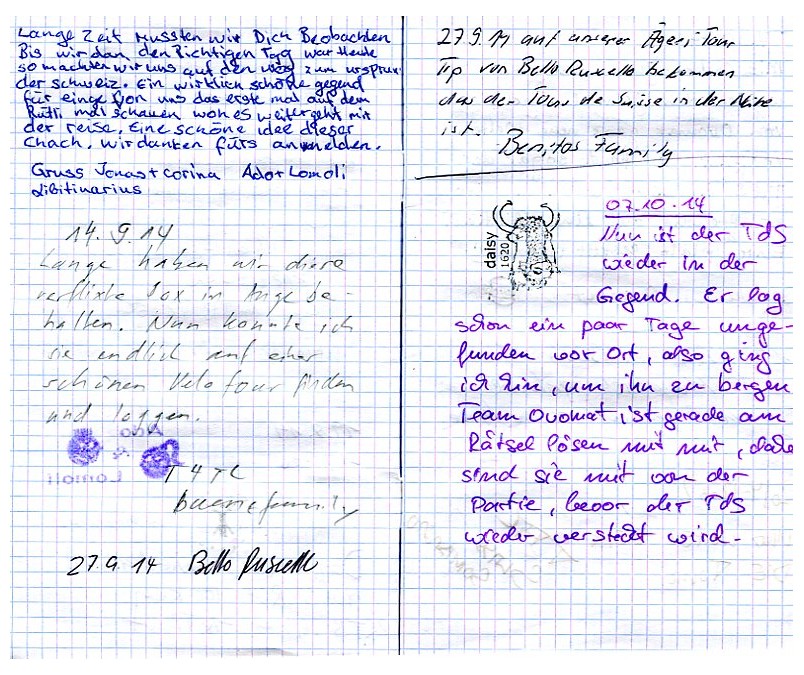 Lange Zeit mussten wir Dich Beobachten
Bis wir dan den Richtigen Tag war Heute
so machten wir uns auf den weg zum ursprun
der schweiz. Ein wirklich schöne gegend
für einge von uns das erste mal auf dem
Rütli mal schauen wohn es weitergeht mit
der reise. Eine schöne idee dieser
Chach. wir danken fürs anmelden.
Gruss Jonas + Corina Ado + Lomoli
Libitinarius
14. 9. 14
Lange haben wir diese
verflixte Box in Auge be-
halten. Nun konnte ich
sie endlich auf einer
schönen Velotour finden
und loggen.
Lomoli
T4TC
buerefamily
27.9.14 Bello Ruscello
27.9.14 auf unserer Ägeri Tour
Tip von Bello Ruscello bekommen
das der Tour de Suisse in der Nähe
ist.
Benitos Family
daisy
1620
07.10.14
Nun ist der TdS
wieder in der
Gegend. Er lag
schon ein paar Tage unge-
funden vor Ort, also ging
ich hin, um ihn zu bergen
Team Ovomat ist gerade am
Rätsel lösen mit mir, daher
sind sie mit von der
Partie, bevor der TdS
wieder versteckt wird.